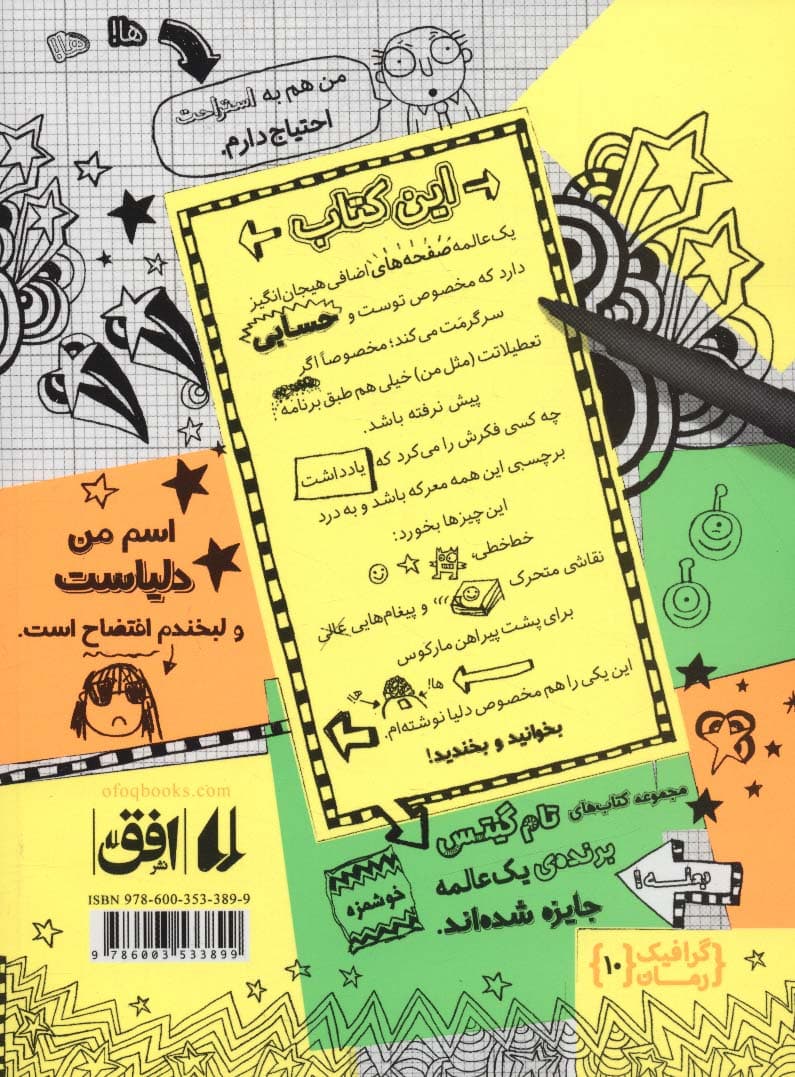 ها!
ها!
من هم به استراحت
احتیاج دارم.
این کتاب
یک عالمه صفحه‌های اضافی هیجان‌انگیز
دارد که مخصوص توست و حسابی
سرگرمَت می‌کند؛ مخصوصاً اگر
تعطیلاتت (مثل من) خیلی هم طبق برنامه
پیش نرفته باشد.
چه کسی فکرش را می‌کرد که یادداشت
برچسبی این همه معرکه باشد و به درد
این چیزها بخورد:
خط‌خطی،
نقاشی متحرک
و پیغام‌هایی عالی
برای پشت پیراهن مارکوس
ها!
ها!
این یکی را هم مخصوص دلیا نوشته‌ام.
بخوانید و بخندید!
اسم من
دلیاست
و لبخندم افتضاح است.
مجموعه کتاب‌های تام گیتس
برنده‌ی یک عالمه
جایزه شده‌اند.
خوشمزه
ofoqbooks.com
نشر افق
ISBN 978-600-353-389-9
9 786003 533899
گرافیک
رمان
{۱۰}